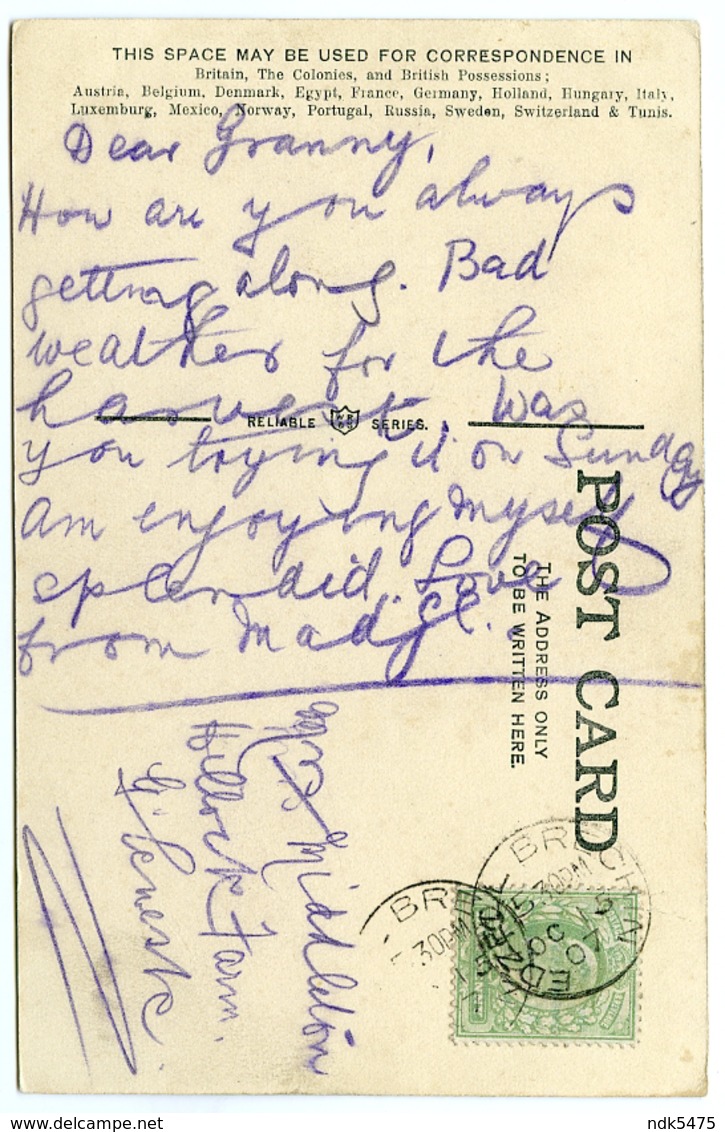 THIS SPACE MAY BE USED FOR CORRESPONDENCE IN
Britain, The Colonies, and British Possessions;
Austria, Belgium, Denmark, Egypt, France, Germany, Holland, Hungary, Italy,
Luxemburg, Mexico, Norway, Portugal, Russia, Sweden, Switzerland & Tunis.
Dear Granny,
How are you always
getting along. Bad
weather for the
harvest. Was
RELIABLE SERIES.
you trying it on Sunday
Am enjoying myself
splendid. Love
from Madge.
POST CARD
THE ADDRESS ONLY
TO BE WRITTEN HERE.
Mrs Middleton
Hillock Farm,
BRECHIN
5.30PM
OC 15
07
BRECHIN
.30PM
15
delcampe.net
ndk5475